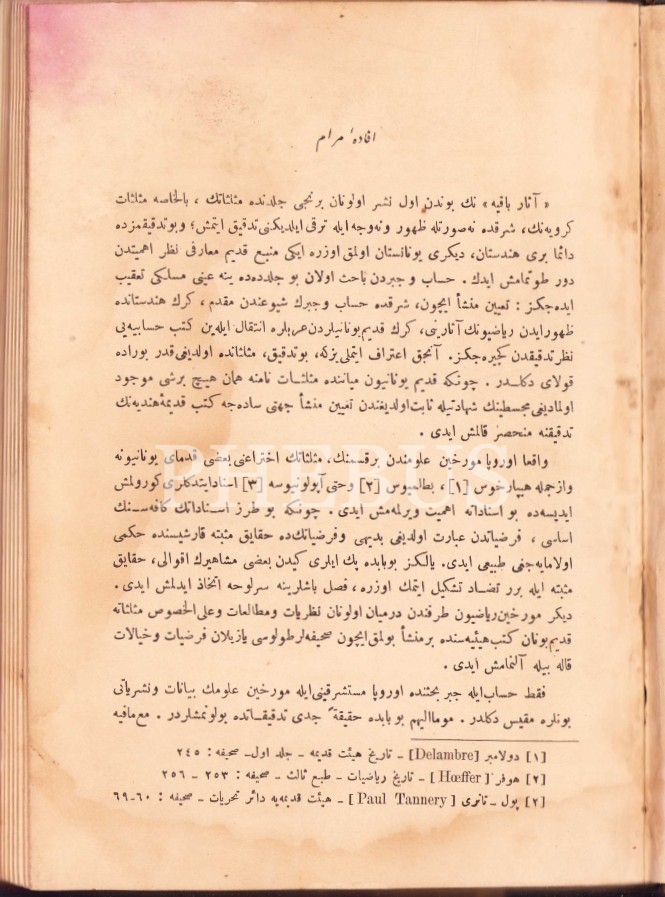 افادهٔ مرام
« آثار باقیه » نك بوندن اول نشر اولونان برنجی جلدنده مثلثاتك ، بالخاصه مثلثات
كرویه‌نك، شرقده نه‌صورتله ظهور ونه‌وجه ایله ترقی ایلدیكنی تدقیق ایتمش؛ وبوتدقیقمزده
دائما بری هندستان، دیكری یونانستان اولمق اوزره ایكی منبع قدیم معارفی نظر اهمیتدن
دور طوتمامش ایدك . حساب و جبردن باحث اولان بو جلدده‌ده ینه عینی مسلكی تعقیب
ایده‌جكز : تعیین منشأ ایچون، شرقده حساب وجبرك شیوعندن مقدم ، كرك هندستانده
ظهور ایدن ریاضیونك آثارینی، كرك قدیم یونانیلردن عربلره انتقال ایله‌ین كتب حسابیه‌یی
نظر تدقیقدن كچیره‌جكز. آنجق اعتراف ایتملی‌یزكه، بوتدقیق، مثلثاتده اولدیغی قدر بوراده
قولای دكلـدر . چونكه قدیم یونانیون میاننده مثلثـات نامنه همان هیـچ برشی موجود
اولمادیغی مجسطینك شهادتیله ثابت اولدیغندن تعیین منشأ جهتی ساده‌جه كتب قدیمهٔ هندیه‌نك
تدقیقنه منحصر قالمش ایدی .
واقعا اوروپا مورخین علومندن برقسمنك، مثلثاتك اختراعنی بعضی قدمای یونانیونه
وازجمله هیپارخوس [١] ، بطالمیوس [٢] وحتی آپولونیوسه [٣] اسناد ایتدكلری كورولمش
ایدیسه‌ده بو اسناداته اهمیت ویرلمه‌مش ایدی . چونكه بو طرز اسـناداتك كافه‌سـنك
اساسی ، فرضیاتدن عبارت اولدیغی بدیهی وفرضیاتك‌ده حقایق مثبته قارشیسنده حكمی
اولامایه‌جغی طبیعی ایدی. یالكز بوبابده پك ایلری كیدن بعضی مشاهیرك اقوالی، حقایق
مثبته ایله برر تضـاد تشكیل ایتمك اوزره ، فصل باشلرینه سرلوحه اتخاذ ایدلمش ایدی .
دیكر مورخین ریاضیون طرفندن درمیان اولونان نظریات ومطالعات وعلی الخصوص مثلثاته
قدیم یونان كتب هیئیه‌سنده برمنشأ بولمق ایچون صحیفه‌لر طولوسی یازیلان فرضیات وخیالات
قاله بیله آلنمامش ایدی .
فقط حساب ایله جبر بحثنده اوروپا مستشرقینی ایله مورخین علومك بیانات ونشریاتی
بونلره مقیس دكلدر . مومالیهم بوبابده حقیقةً جدی تدقیقـاتده بولونمشلردر . مع‌مافیه
[١] دولامبر [Delambre] ـ تاریخ هیئت قدیمه ـ جلد اول ـ صحیفه : ٢٤٥
[٢] هوفر [Hœffer] ـ تاریخ ریاضیات ـ طبع ثالث ـ صحیفه : ٢٥٣ ـ ٢٥٦
[٢] پول ـ تانری [Paul Tannery] ـ هیئت قدیمه‌یه دائر تحریات ـ صحیفه : ٦٠ـ٦٩
PHEBUS